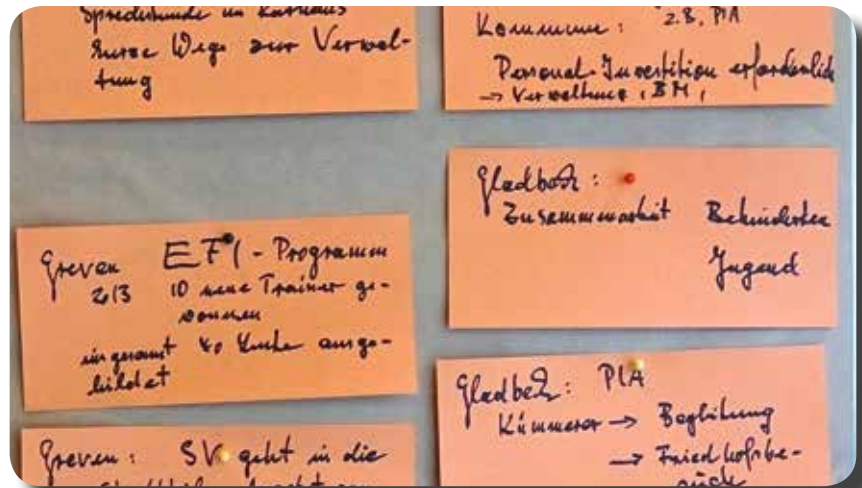 Sprechstunde im Rathaus
kurze Wege zur Verwal-
tung
Greven EFI - Programm
2013 10 neue Trainer ge-
wonnen
insgesamt 40 Leute ausge-
bildet
Greven: SV geht in die
Kommune: z.B. PIA
Personal-Investition erforderlich
→ Verwaltung, BM,
Gladbeck:
Zusammenarbeit Behinderten
Jugend
Gladbeck: PIA
Kümmerer → Begleitung
→ Friedhofsbe-
suche